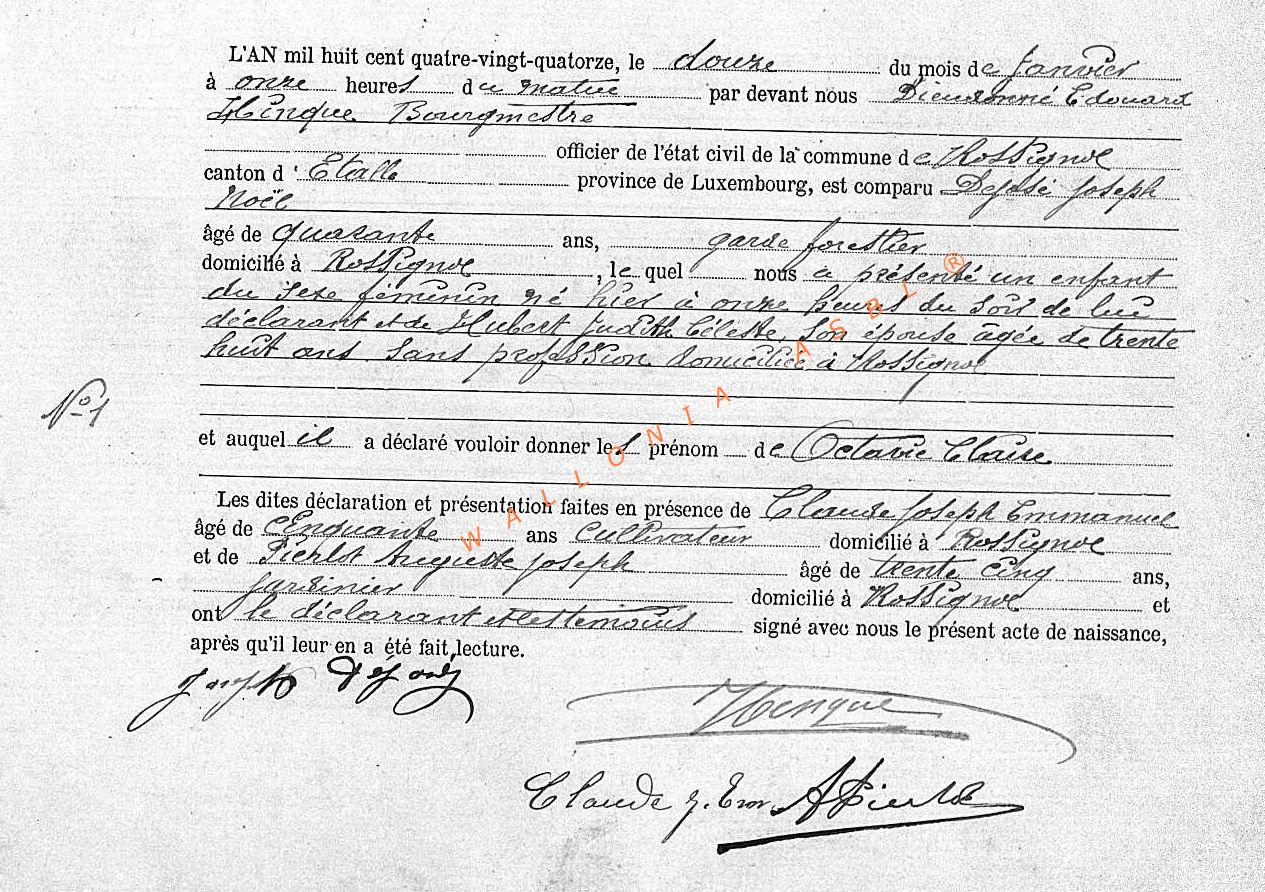 L'AN mil huit cent quatre-vingt-quatorze, le douze du mois de Janvier
à onze heures du matin par devant nous Dieudonné Edouard
Hinque Bourgmestre
officier de l'état civil de la commune de Rossignol
canton d'Etalle province de Luxembourg, est comparu Joseph
Noël
âgé de quarante ans, garde forestier
domicilié à Rossignol, le quel nous a présenté un enfant
du sexe féminin né hier à onze heures du soir de lui
déclarant et de Hubert Judith Céleste, son épouse âgée de trente
huit ans sans profession domiciliée à Rossignol
No 1
et auquel il a déclaré vouloir donner les prénom de Octavie Claire
Les dites déclaration et présentation faites en présence de Claude Joseph Emmanuel
âgé de cinquante ans cultivateur domicilié à Rossignol
et de Auguste Joseph âgé de trente cinq ans,
jardinier domicilié à Rossignol et
ont le déclarant et les témoins signé avec nous le présent acte de naissance,
après qu'il leur en a été fait lecture.
Joseph
Henque
Claude J. Em.
WALLONIA ASBL ®